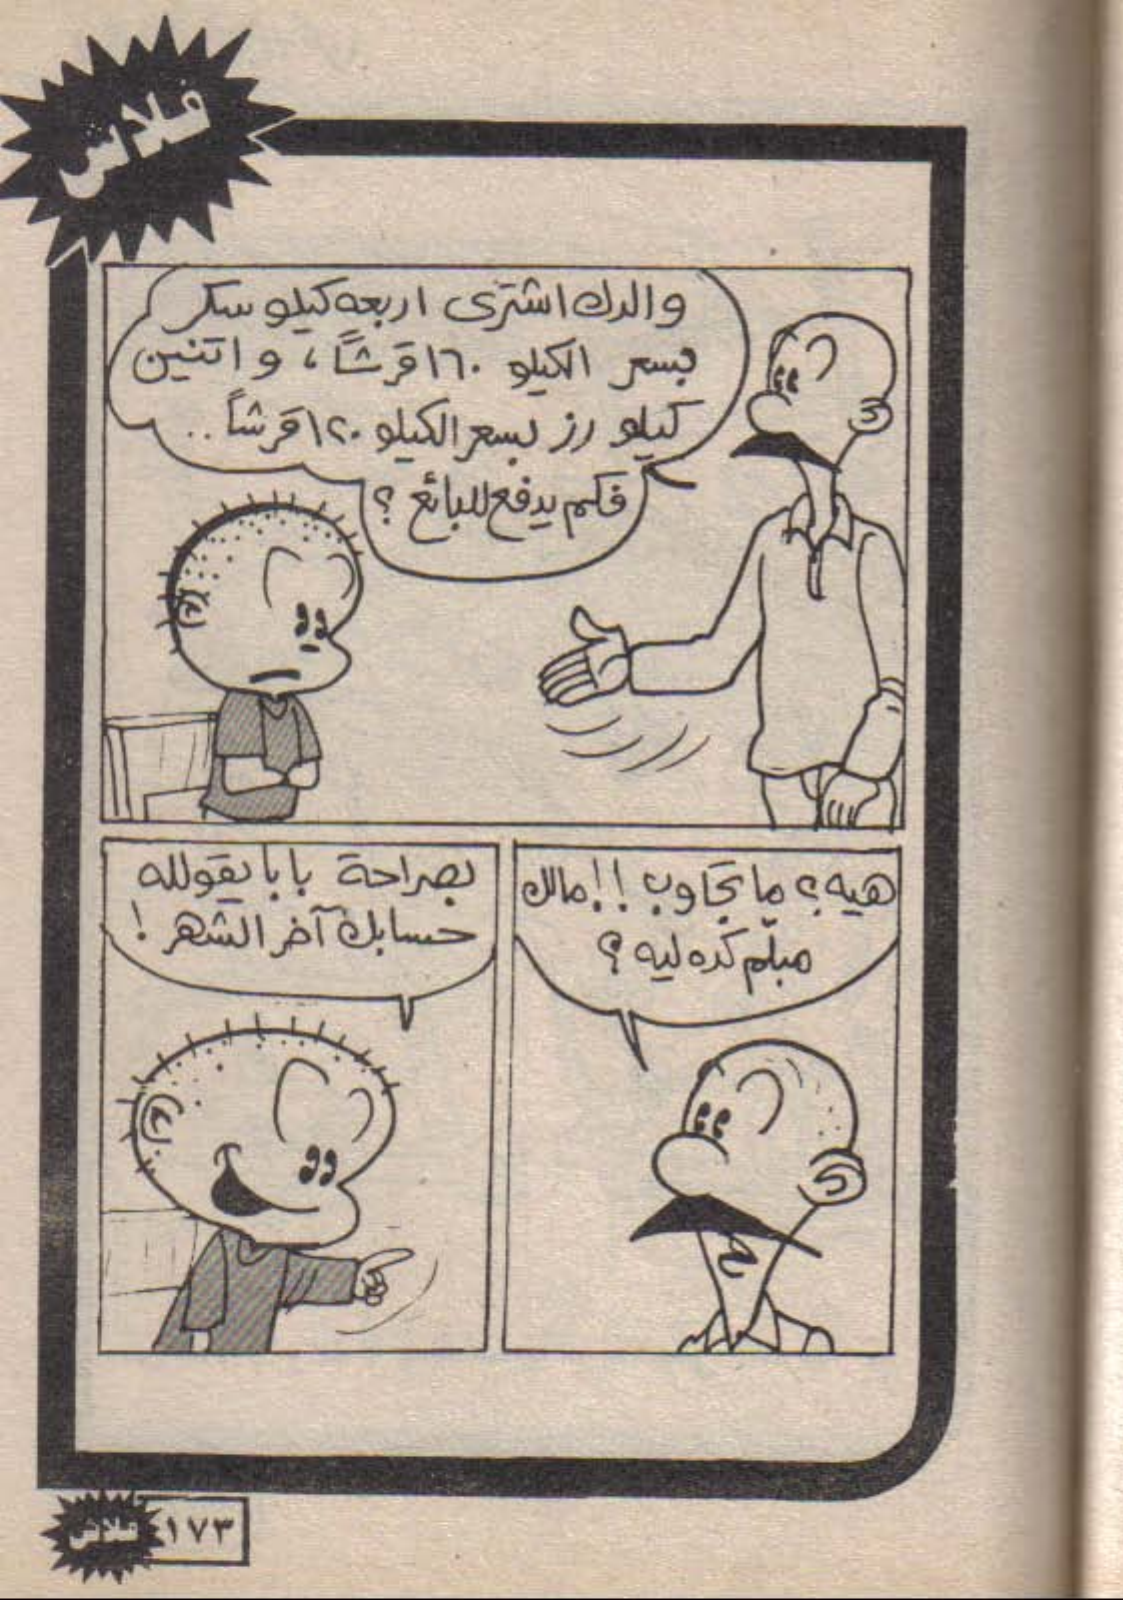 فلاش
والدك اشترى اربعه كيلو سكر
بسعر الكيلو ١٦٠ قرشاً، و اتنين
كيلو رز بسعر الكيلو ١٢٠ قرشاً..
فكم يدفع للبائع ؟
هيه ؟ ما تجاوب !! مالك
مبلّم كده ليه ؟
بصراحة بابا يقولله
حسابك آخر الشهر !
فلاش ١٧٣